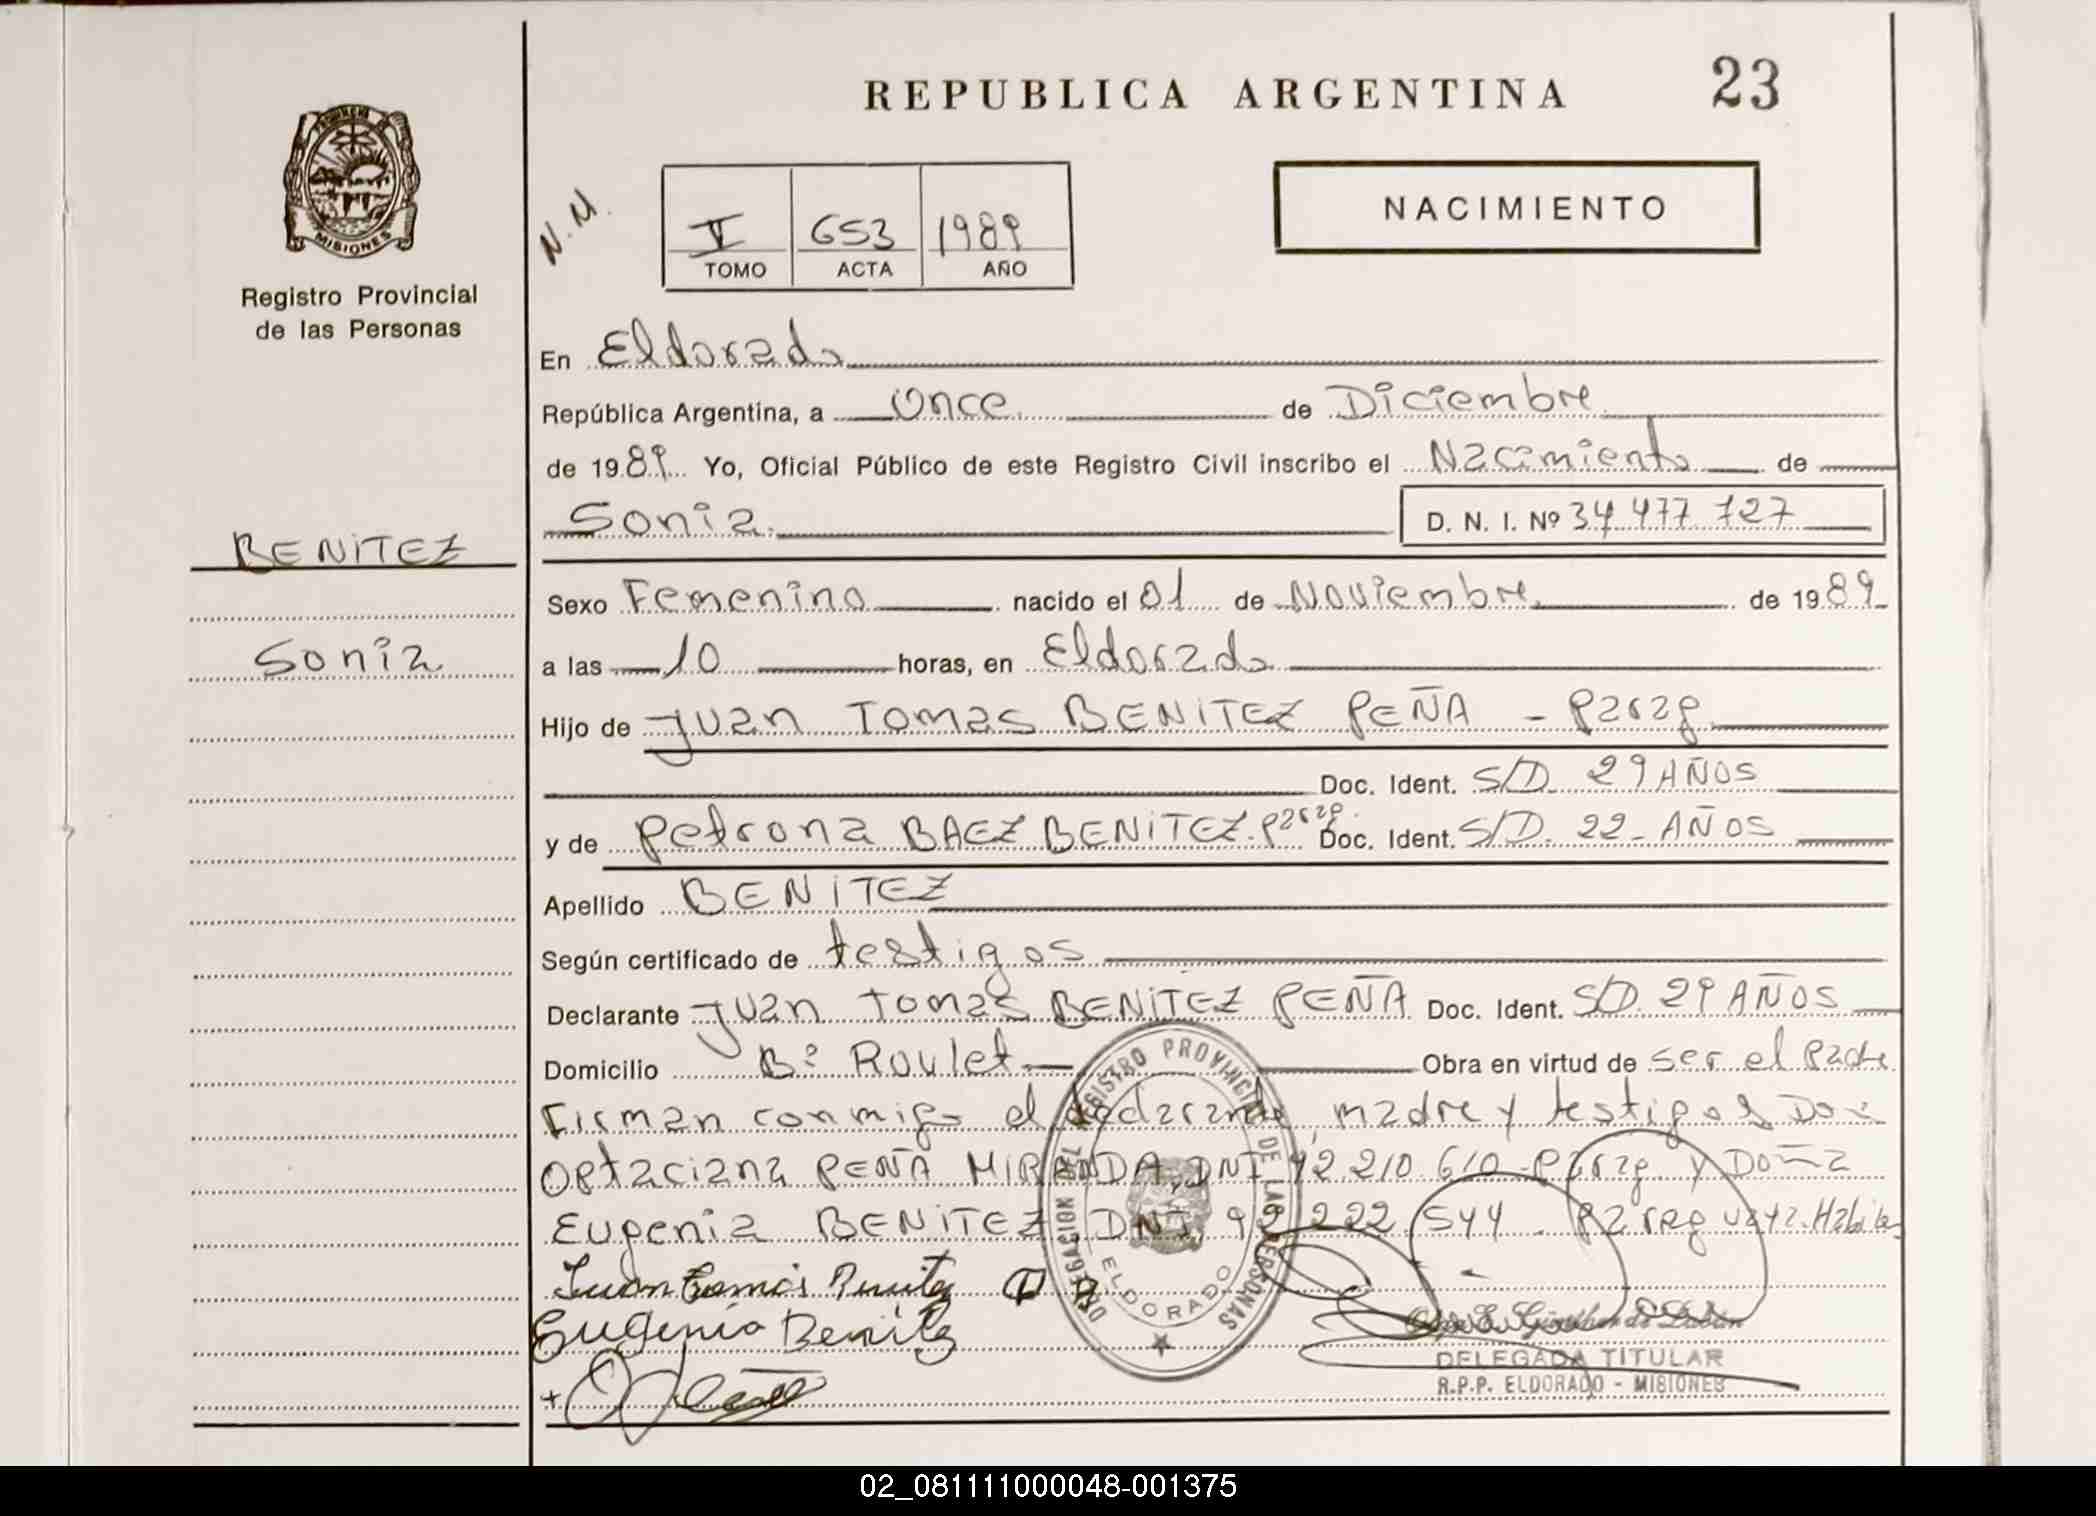 REPUBLICA ARGENTINA 23
PROVINCIA DE
MISIONES
Registro Provincial
de las Personas
N.M.
V 653 1989
TOMO ACTA AÑO
NACIMIENTO
En Eldorado
República Argentina, a Once de Diciembre
de 1989 Yo, Oficial Público de este Registro Civil inscribo el Nacimiento de
Sonia D. N. I. Nº 34 477 727
BENITEZ
Sonia
Sexo Femenino nacido el 01 de Noviembre de 1989
a las 10 horas, en Eldorado
Hijo de Juan Tomas BENITEZ PEÑA - parag.
Doc. Ident. S/D. 29 AÑOS
y de Petrona BAEZ BENITEZ. parag. Doc. Ident. S/D. 22 - AÑOS
Apellido BENITEZ
Según certificado de testigos
Declarante Juan Tomas BENITEZ PEÑA Doc. Ident. S/D. 29 AÑOS
Domicilio Bº Roulet Obra en virtud de ser el padre
Firman conmigo el declarante, madre y testigos Don
Optaciana PEÑA MIRANDA, DNI 92.210.610 - parag. y Doña
Eugenia BENITEZ, DNI 92.222.544 - paraguaya. Habiles
Juan Tomás Benitez P B
Eugenia Benitez
DELEGACION DEL REGISTRO PROVINCIAL DE LAS PERSONAS
ELDORADO
DELEGADA TITULAR
R.P.P. ELDORADO - MISIONES
02_081111000048-001375